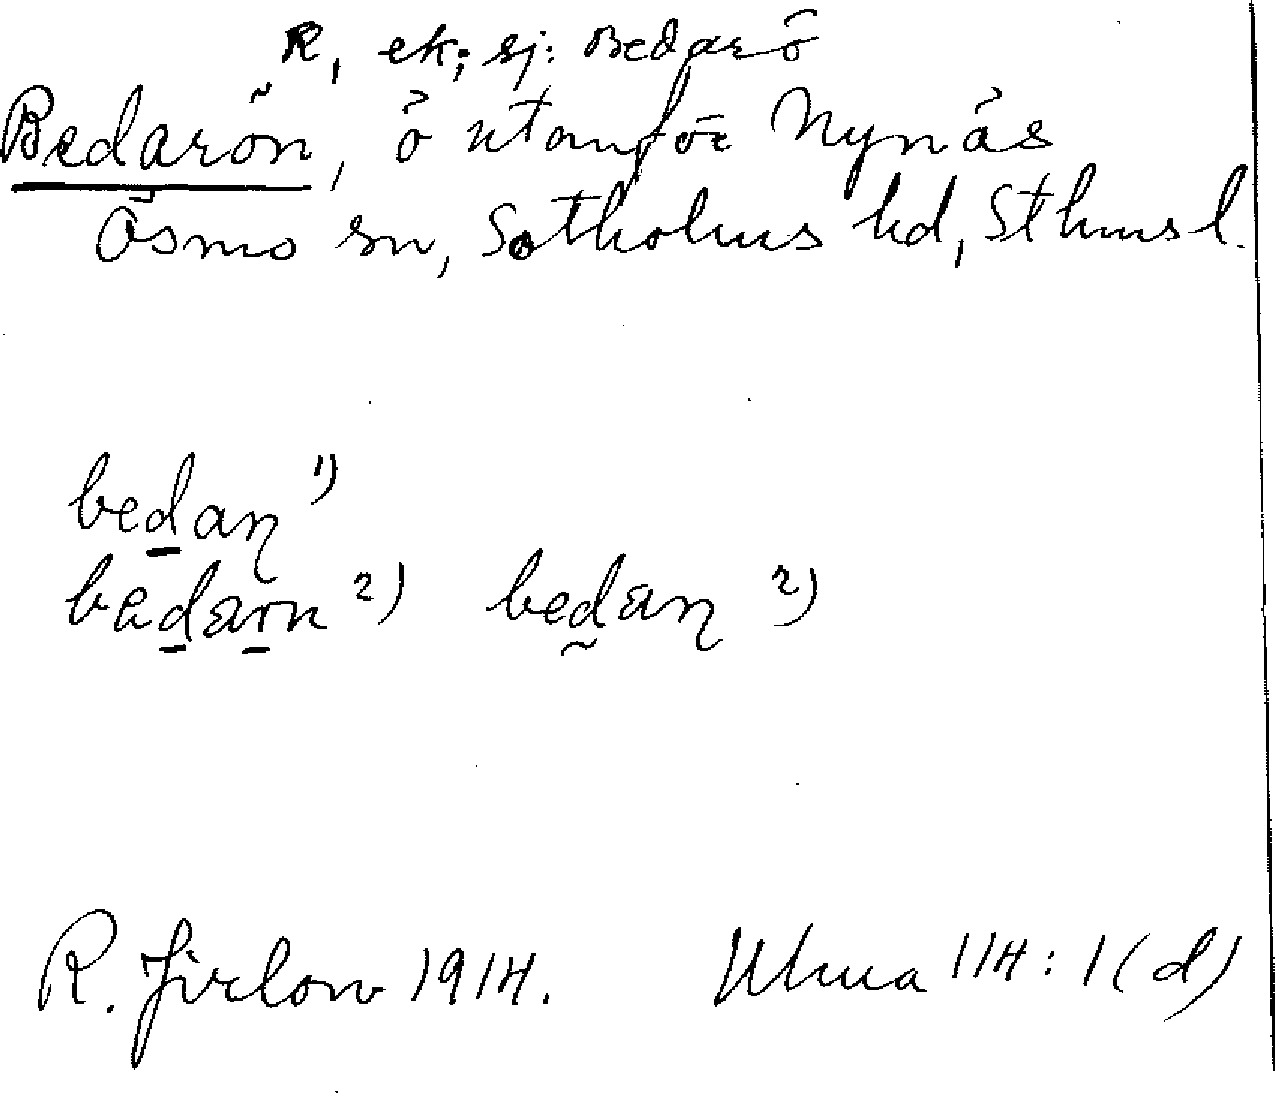 R, ek; sj: Bedarö
Bedarön, ö utanför Nynäs
Ösmo sn, Sotholms hd, Sthmsl.
bedaɳ 1)
bedarn 2) bedaɳ 2)
R. Jirlow 1914. Uhua 114:1(d)